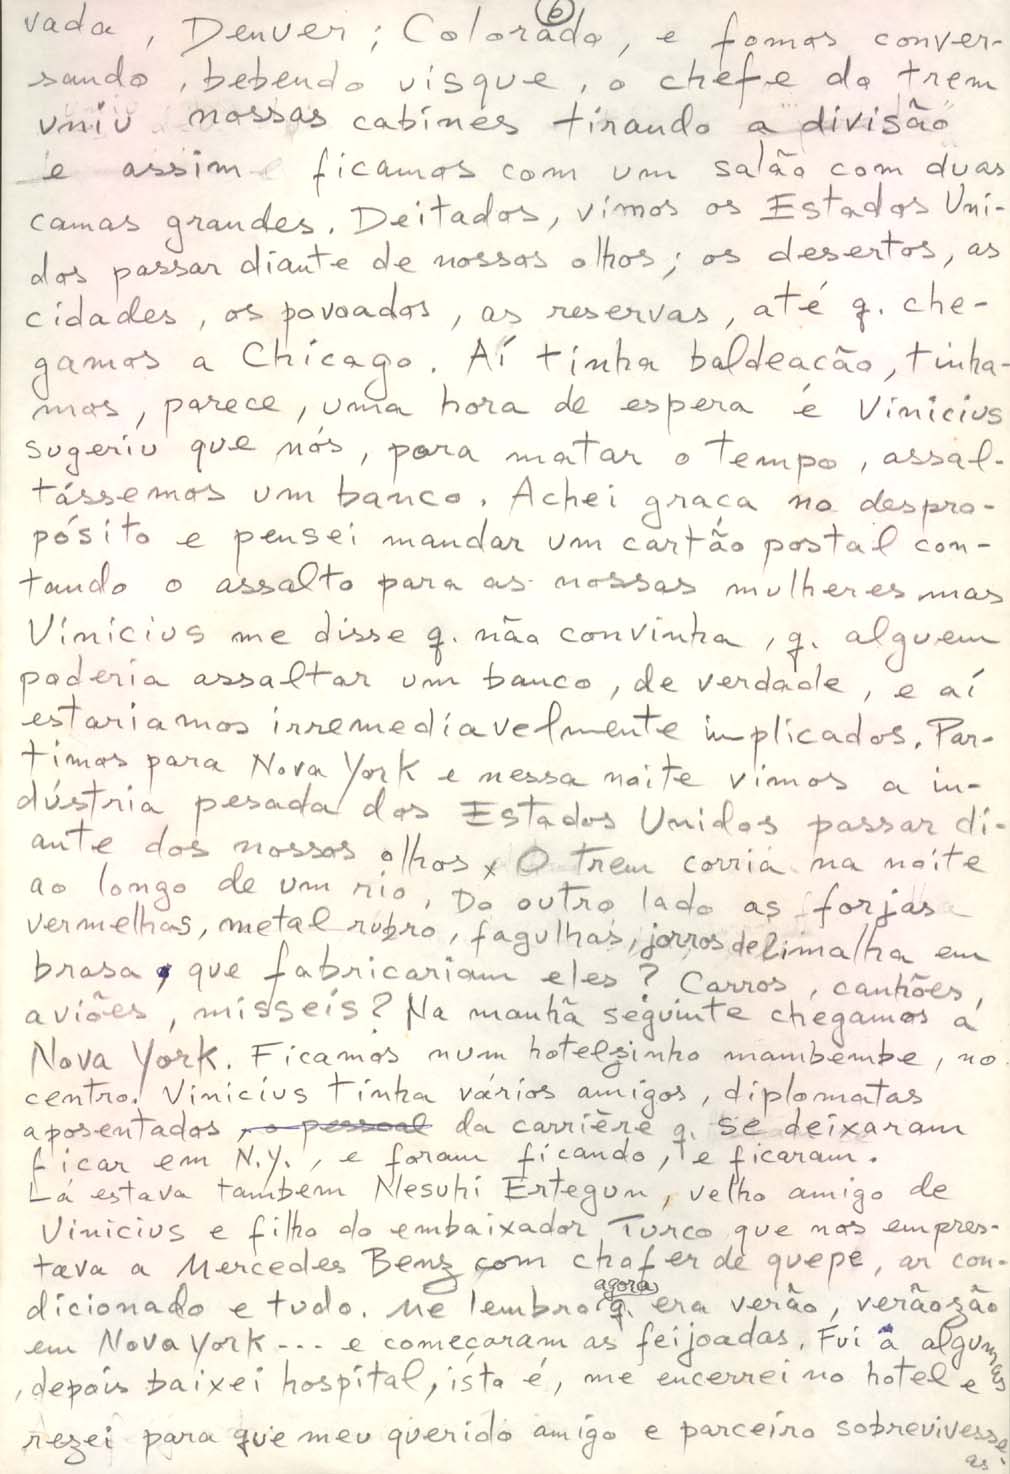 6
vada, Denver; Colorado, e fomos conver-
sando, bebendo uísque, o chefe do trem
uniu nossas cabines tirando a divisão
e assim ficamos com um salão com duas
camas grandes. Deitados, vimos os Estados Uni-
dos passar diante de nossos olhos; os desertos, as
cidades, os povoados, as reservas, até q. che-
gamos a Chicago. Aí tinha baldeacão, tinha-
mos, parece, uma hora de espera e Vinicius
sugeriu que nós, para matar o tempo, assal-
tássemos um banco. Achei graça no despro-
pósito e pensei mandar um cartão postal con-
tando o assalto para as nossas mulheres mas
Vinicius me disse q. não convinha, q. alguem
poderia assaltar um banco, de verdade, e aí
estariamos irremediavelmente implicados. Par-
timos para Nova York e nessa noite vimos a in-
dústria pesada dos Estados Unidos passar di-
ante dos nossos olhos x O trem corria na noite
ao longo de um rio. Do outro lado as forjas
vermelhas, metal rubro, fagulhas, jorros de limalha em
brasa, que fabricariam eles? Carros, canhões,
aviões, misseis? Na manhã seguinte chegamos á
Nova York. Ficamos num hotelzinho mambembe, no
centro. Vinicius tinha vários amigos, diplomatas
aposentados, o pessoal da carrière q. se deixaram
ficar em N.Y., e foram ficando, e ficaram.
Lá estava tambem Nesuhi Ertegun, velho amigo de
Vinicius e filho do embaixador Turco que nos empres-
tava a Mercedes Benz com chofer de quepe, ar con-
dicionado e tudo. Me lembro agora q. era verão, verãozão
em Nova York --- e começaram as feijoadas. Fui a algumas
, depois baixei hospital, isto é, me encerrei no hotel e
rezei para que meu querido amigo e parceiro sobrevivesse
as